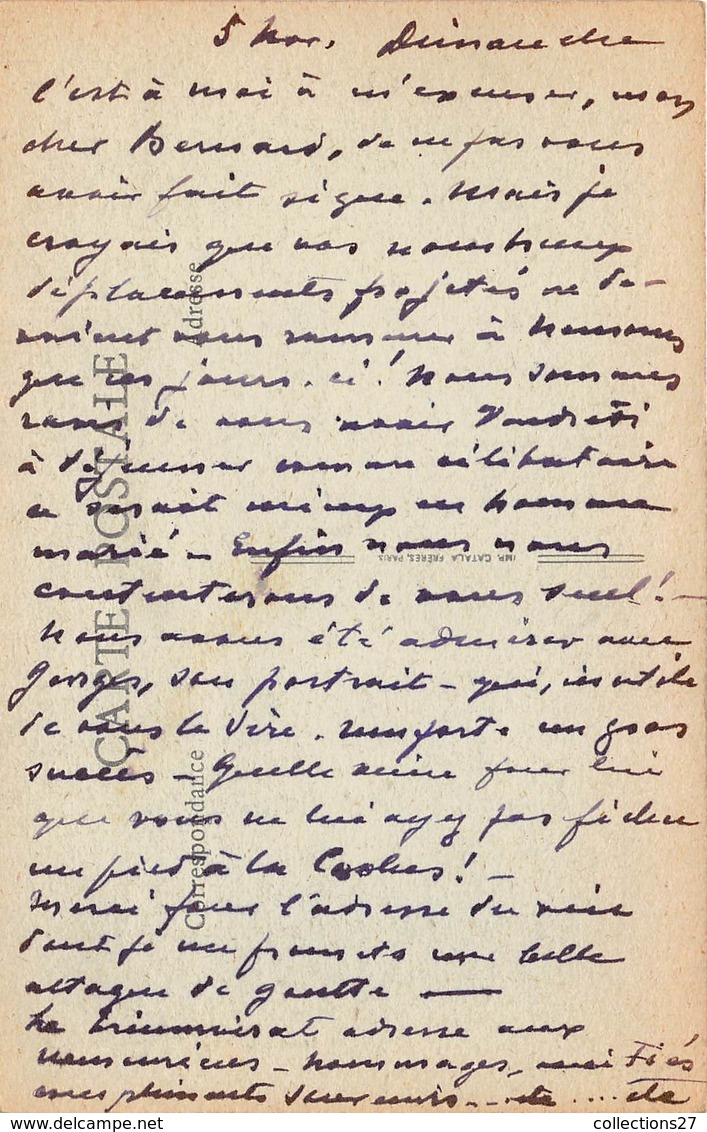 5 Nov. Dimanche
c'est à moi à m'excuser, mon
cher Bernard, de ne pas vous
avoir fait signe. Mais je
croyais que vos nombreux
déplacements projetés ne de-
vaient vous ramener à
que ces jours-ci! Nous sommes
ravis de vous avoir Vendredi
à déjeuner comme célibataire
ce serait mieux en homme
marié - Enfin nous nous
contenterons de vous seul! -
Nous avons été admirer avec
Georges, son portrait - qui, inutile
de vous le dire. remporte un gros
succès - Quelle veine pour lui
que vous ne lui ayez pas fichu
un pied à la
Merci pour l'adresse du vin
dont je me promets une belle
attaque de goutte —
Le triumvirat adresse aux
hommages, amitiés
compliments souvenirs - - etc .... etc
CARTE POSTALE
Correspondance
Adresse
IMP. CATALA FRÈRES, PARIS
collections27